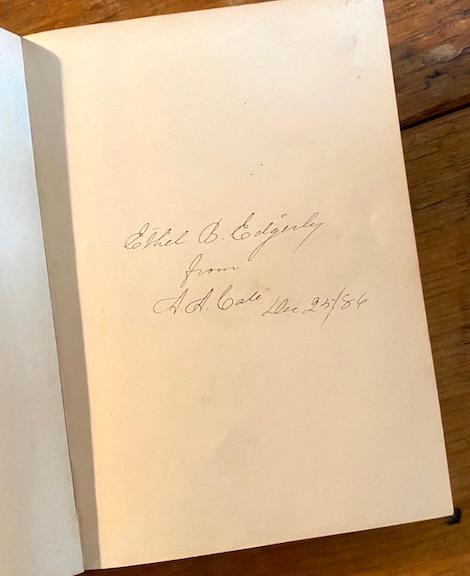 Ethel B. Edgerly
from
A. A. Cate Dec 25/86